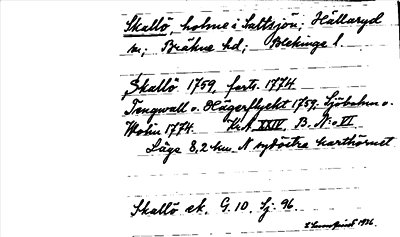 Skallö, holme i Saltsjön; Hällaryd
sn; Bräkne hd; Blekinge l.
Skallö 1759, forts. 1774
Tengwall o. Hägerflycht 1759. Sjöbohm o.
Wohn 1774. Krt XXIV. B. N:o VI
Läge 8,2 km N sydöstra karthörnet
Skallö ek. G. 10. Sj. 96.
1936